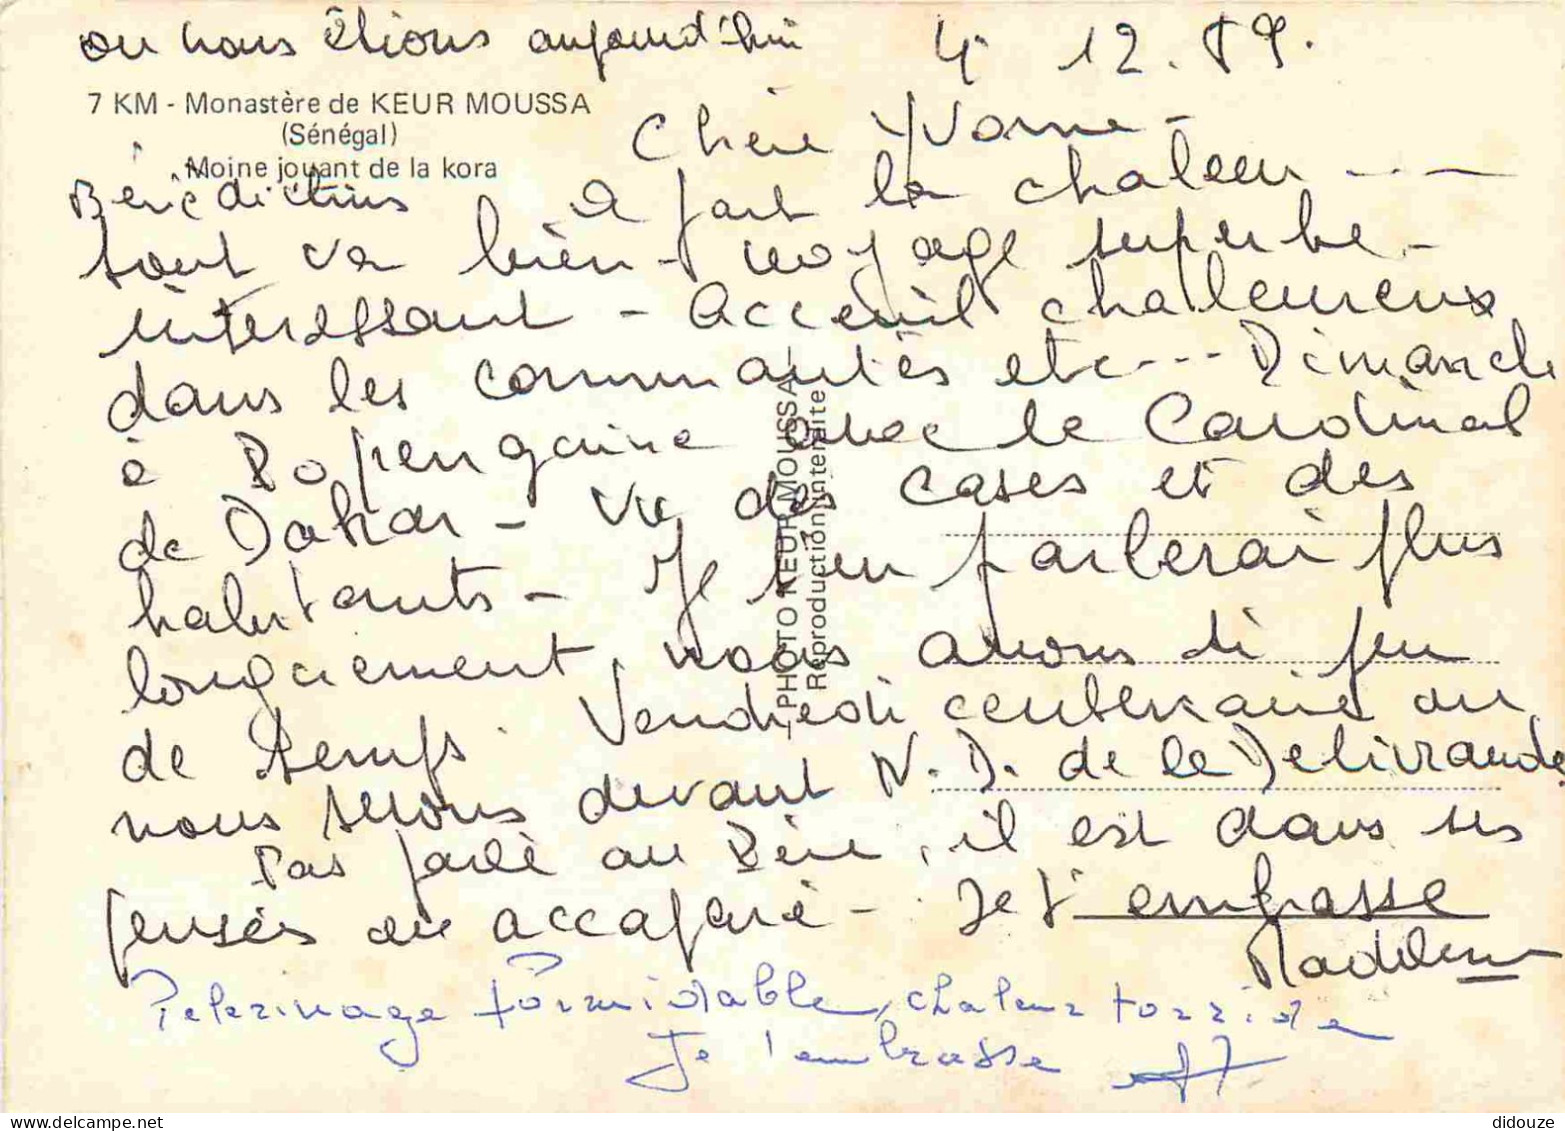 ou nous étions aujourd'hui 4. 12. 89.
7 KM - Monastère de KEUR MOUSSA
(Sénégal)
Moine jouant de la kora
Bénédictins
Chère Yvonne -
Il fait la chaleur ---
tout va bien - voyage superbe -
intéressant - Acceuil chaleureux
dans les communautés etc--- Dimanche
à Popenguine avec le Cardinal
de Dakar - vu des cases et des
habitants - Je t'en parlerai plus
longuement, nous avons si peu
de temps. Vendredi centenaire où
nous serons devant N.D. de la Delivrande
Pas parlé au Père, il est dans ses
pensées ou accaparé - Je t'embrasse
Madeleine
Pelerinage formidable, chaleur torride
Je t'embrasse
PHOTO KEUR MOUSSA
Reproduction interdite
didouze